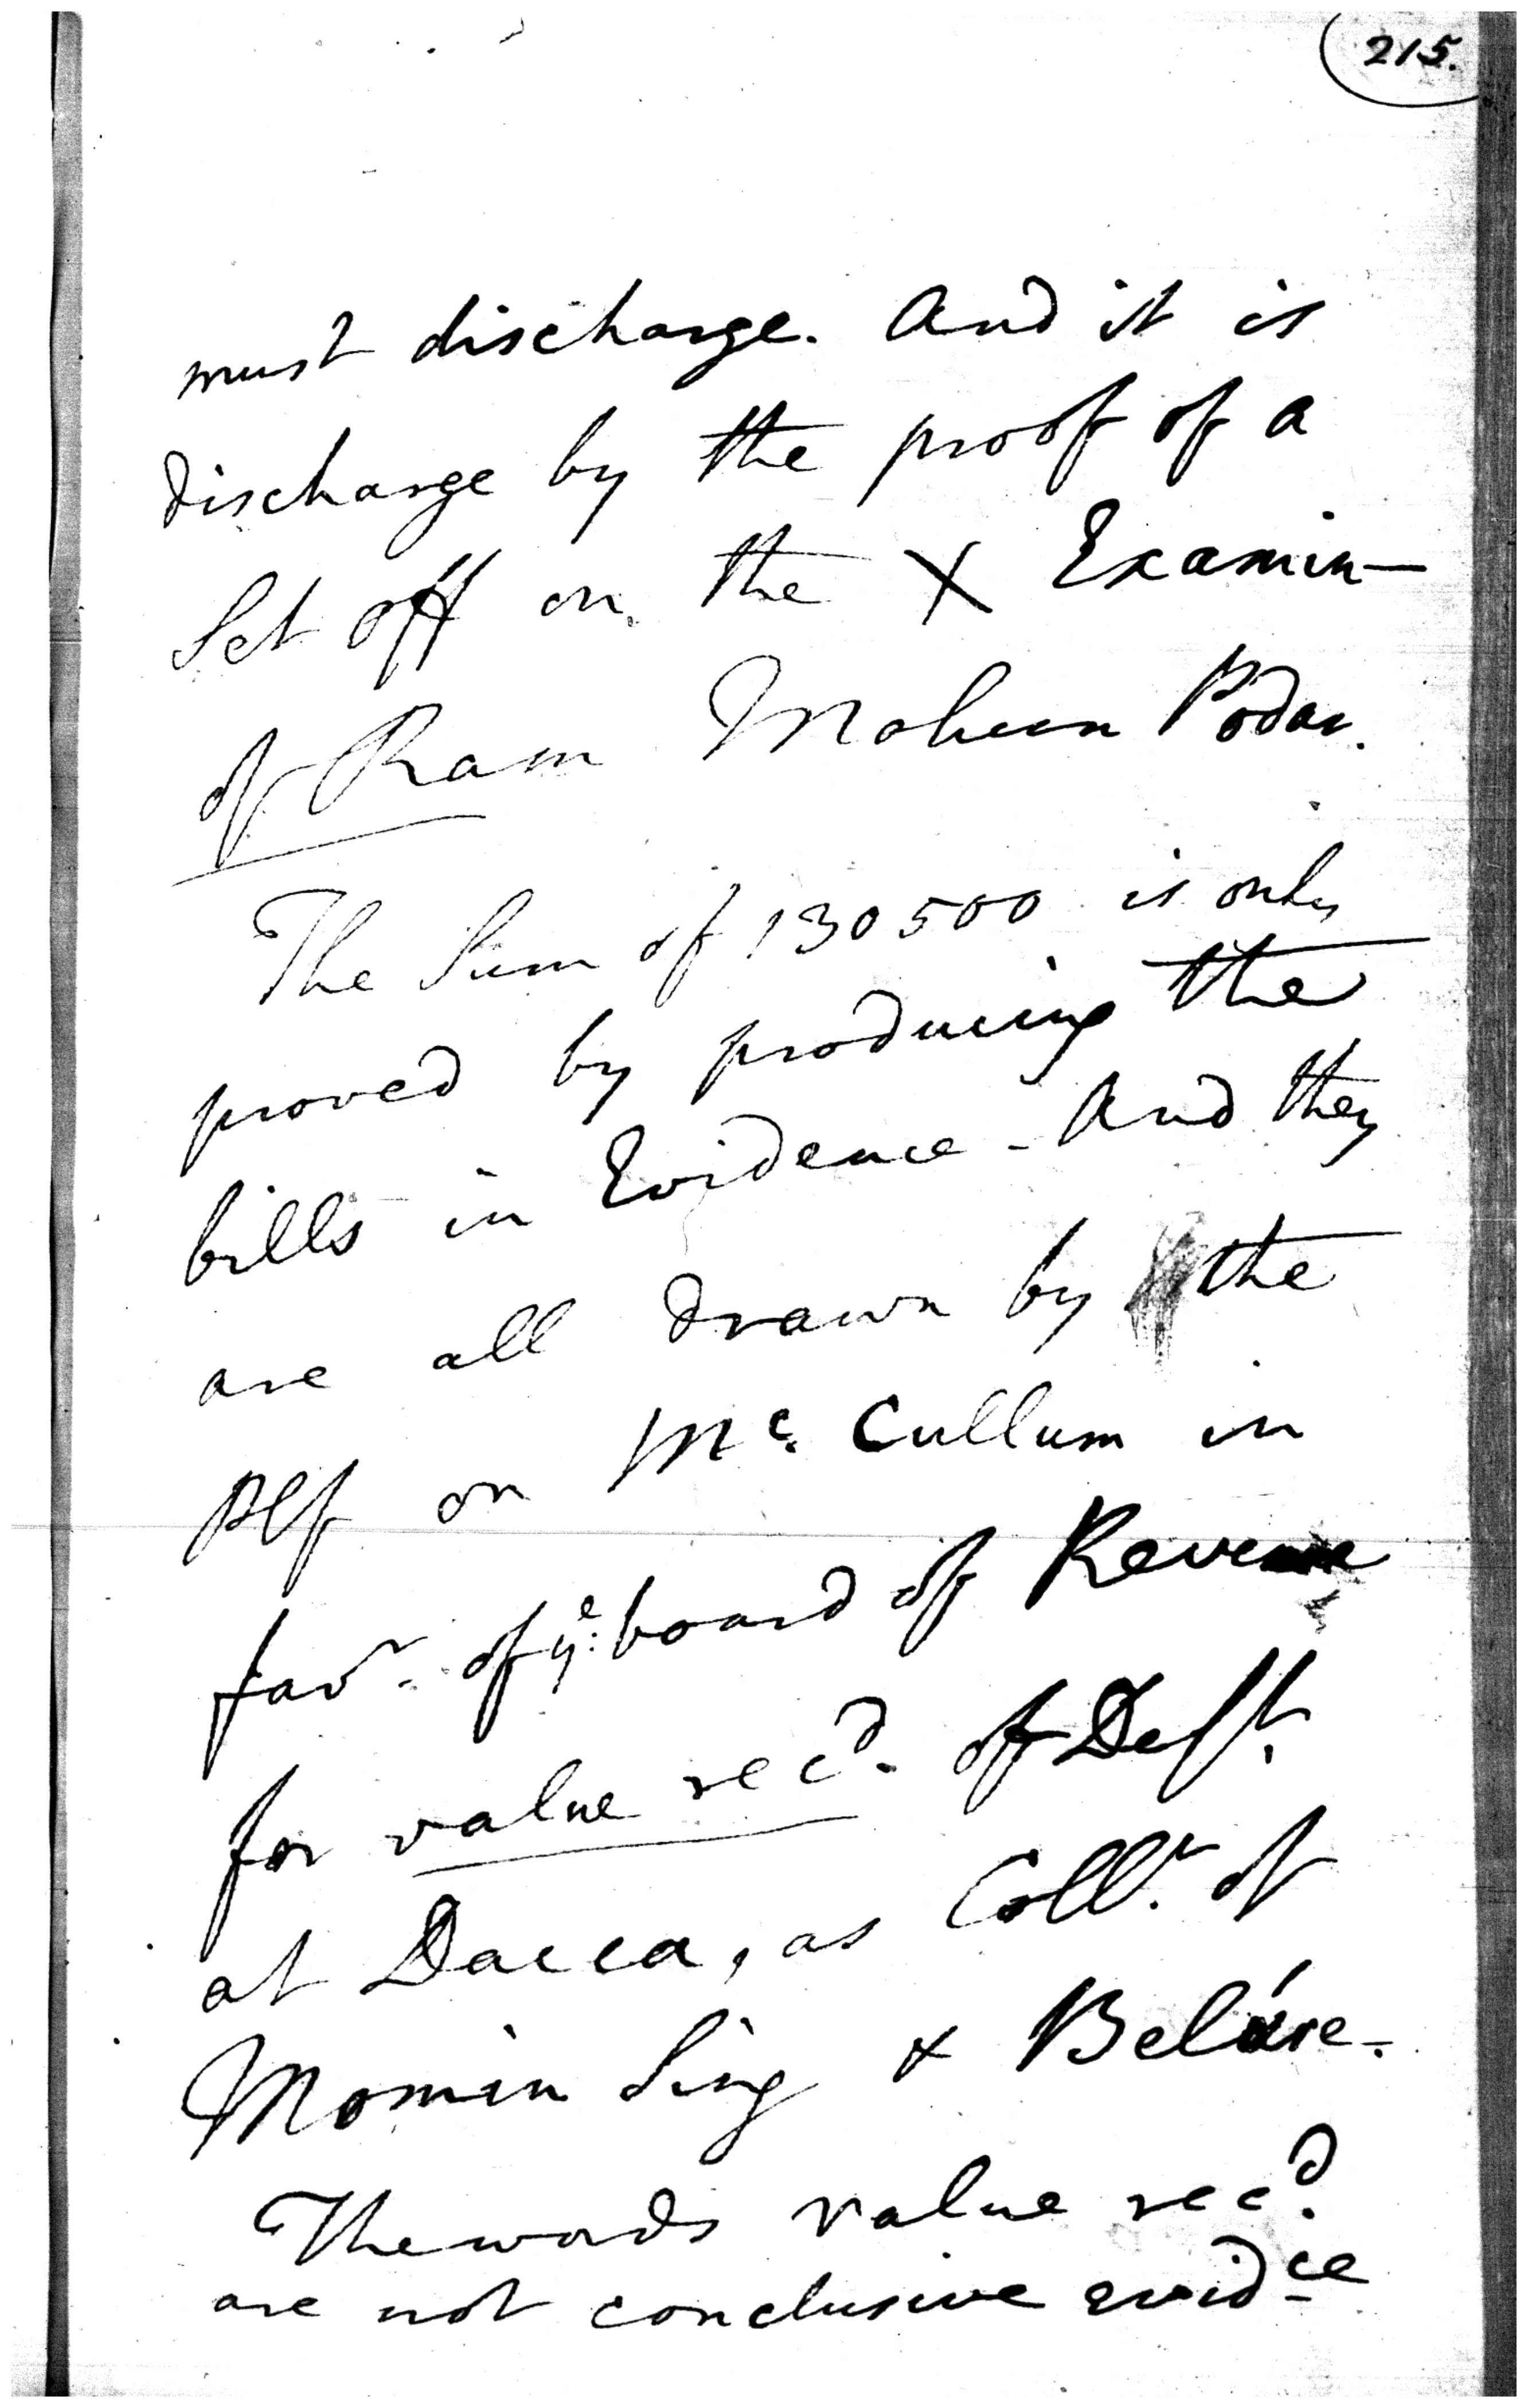 215.
must discharge. And it is
discharge by the proof of a
Set off on the X Examin-
of Ram Mohun Podar.
The Sum of 130500 is only
proved by producing the
bills in Evidence - And they
are all drawn by the
Plf on Mc. Cullum in
favr. of ye: board of Revenue
for value recd. of Deft.
at Dacca, as Collr. of
Momin Sing &
The words value recd.
are not conclusive evidce